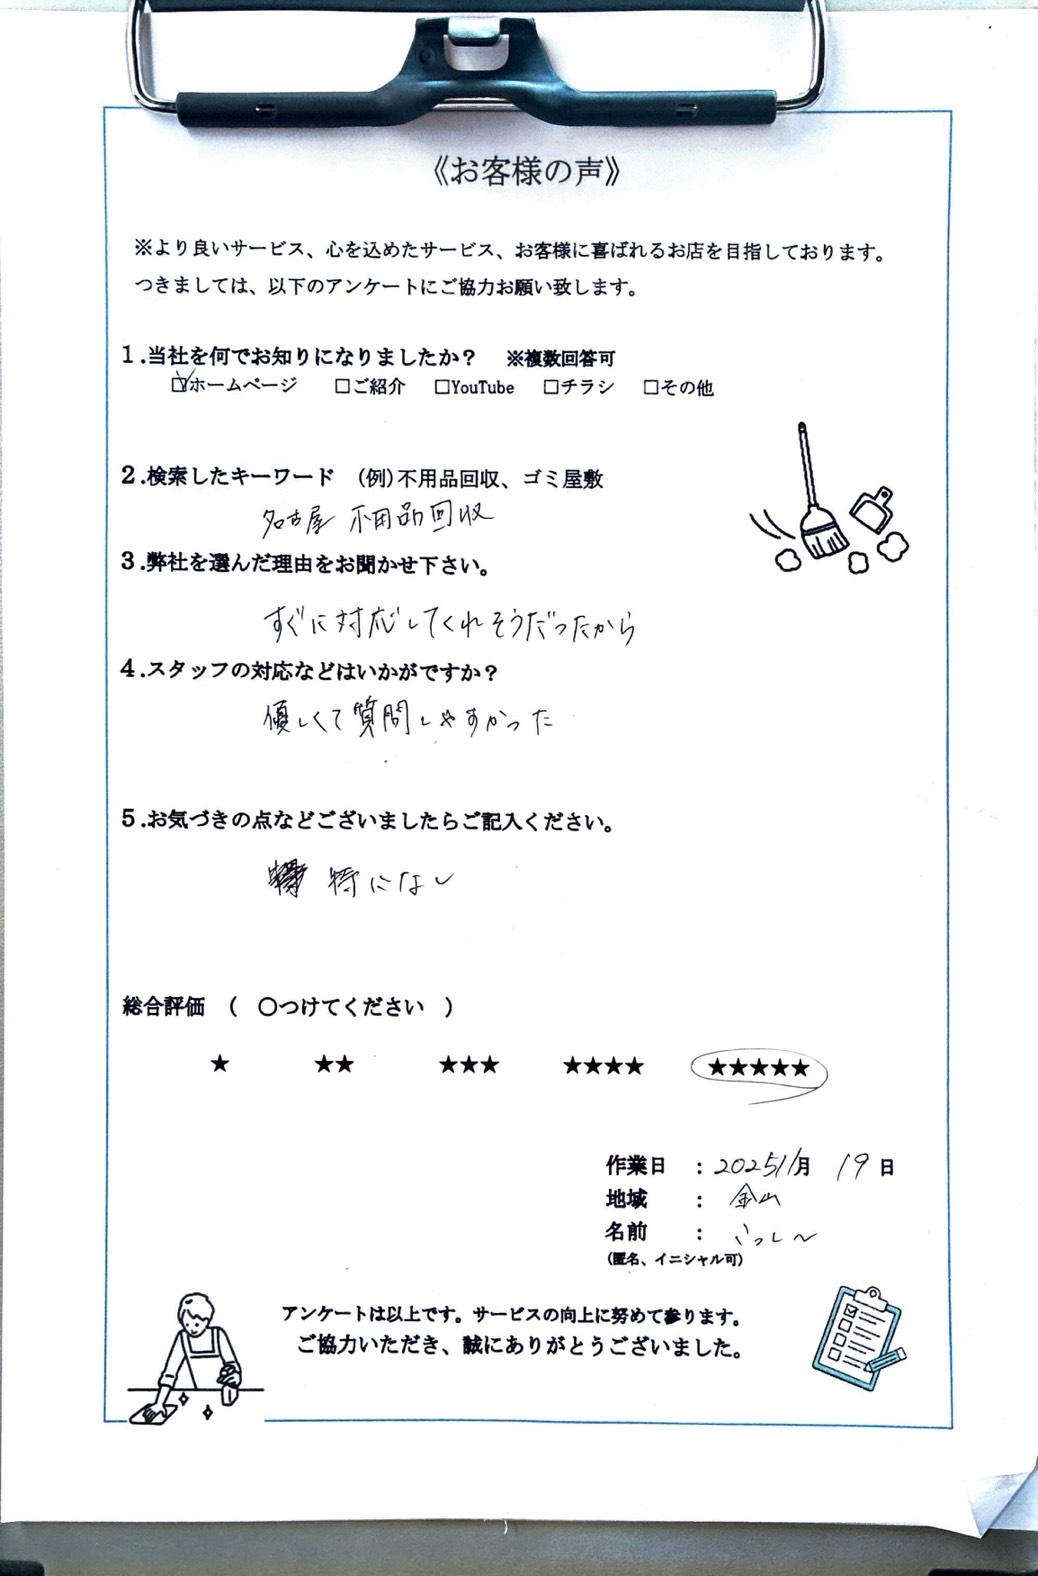 《お客様の声》
※より良いサービス、心を込めたサービス、お客様に喜ばれるお店を目指しております。
つきましては、以下のアンケートにご協力お願い致します。
1.当社を何でお知りになりましたか？ ※複数回答可
☑ホームページ □ご紹介 □YouTube □チラシ □その他
2.検索したキーワード (例)不用品回収、ゴミ屋敷
名古屋 不用品回収
3.弊社を選んだ理由をお聞かせ下さい。
すぐに対応してくれそうだったから
4.スタッフの対応などはいかがですか？
優しくて質問しやすかった
5.お気づきの点などございましたらご記入ください。
特になし
総合評価 ( ○つけてください )
★ ★★ ★★★ ★★★★ ★★★★★
作業日 : 2025/11月 19日
地域 : 金山
名前 :
(匿名、イニシャル可)
アンケートは以上です。サービスの向上に努めて参ります。
ご協力いただき、誠にありがとうございました。